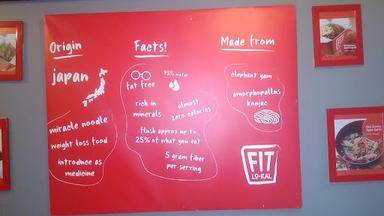 Origin
japan
miracle noodle
weight loss food
introduce as
medicine
Facts!
fat free
95% water
rich in
minerals
almost
zero calories
Flush approx up to
25% of what you eat
5 gram fiber
per serving
Made from
elephant yam
amorphopallus
konjac
FIT
LO-KAL